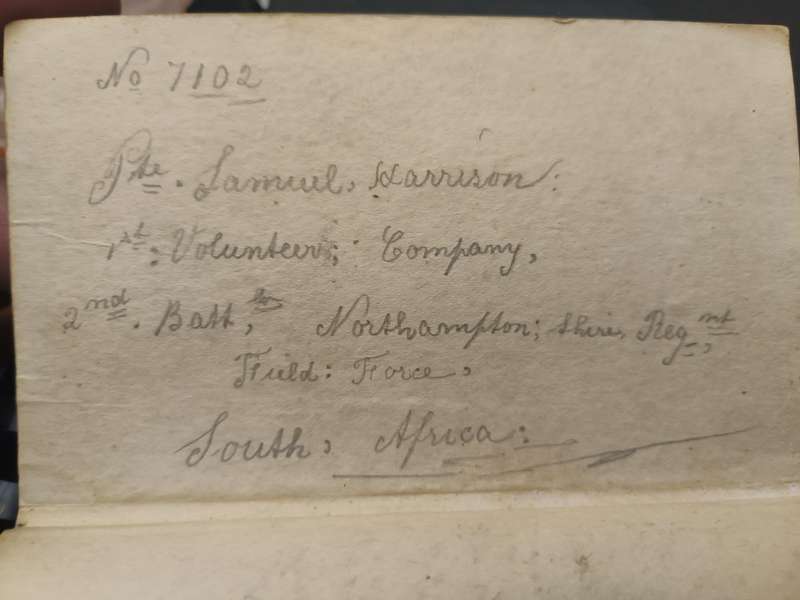 No 7102
Pte. Samuel, Harrison:
1st: Volunteers; Company,
2nd. Batt, ln Northampton; shire, Regnt,
Field: Force,
South, Africa: